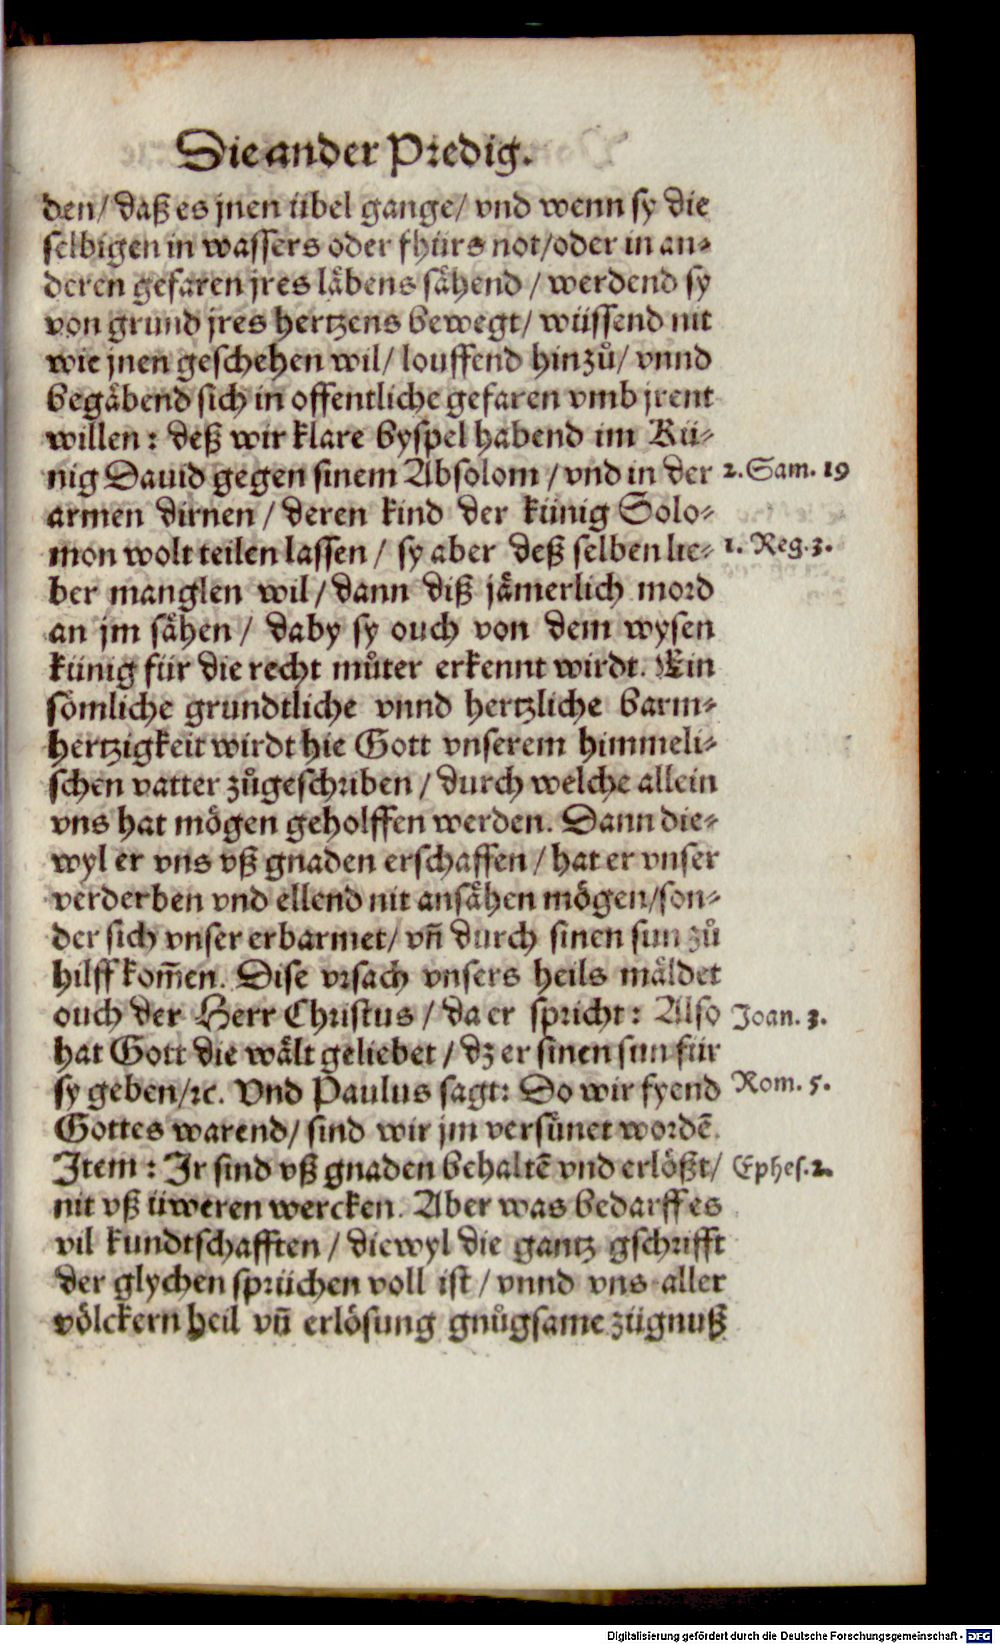 Die ander Predig.
den/ daß es jnen übel gange/ vnd wenn sy die
selbigen in wassers oder fhürs not/oder in an⸗
deren gefaren jres läbens sähend / werdend sy
von grund jres hertzens bewegt/ wüssend nit
wie jnen geschehen wil/ louffend hinzů/ vnnd
begäbend sich in offentliche gefaren vmb jrent
willen: deß wir klare byspel habend im Kü⸗
nig Dauid gegen sinem Absolom / vnd in der
2. Sam. 19
armen dirnen / deren kind der künig Solo⸗
mon wolt teilen lassen / sy aber deß selben lie⸗
1. Reg. 3.
ber manglen wil / dann diß jämerlich mord
an jm sähen / daby sy ouch von dem wysen
künig für die recht můter erkennt wirdt. Ein
sömliche grundtliche vnnd hertzliche barm⸗
hertzigkeit wirdt hie Gott vnserem himmeli⸗
schen vatter zůgeschriben / durch welche allein
vns hat mögen geholffen werden. Dann die⸗
wyl er vns vß gnaden erschaffen / hat er vnser
verderben vnd ellend nit ansähen mögen/son⸗
der sich vnser erbarmet/ vn̄ durch sinen sun zů
hilff kom̄en. Dise vrsach vnsers heils mäldet
ouch der Herr Christus / da er spricht: Also
Joan. 3.
hat Gott die wält geliebet / dz er sinen sun für
sy geben/ꝛc. Vnd Paulus sagt: Do wir fyend
Rom. 5.
Gottes warend/ sind wir jm versünet wordē.
Item: Ir sind vß gnaden behaltē vnd erlößt/
Ephes. 2.
nit vß üweren wercken. Aber was bedarff es
vil kundtschafften / diewyl die gantz gschrifft
der glychen sprüchen voll ist / vnnd vns aller
völckern heil vn̄ erlösung gnůgsame zügnuß
Digitalisierung gefördert durch die Deutsche Forschungsgemeinschaft - DFG